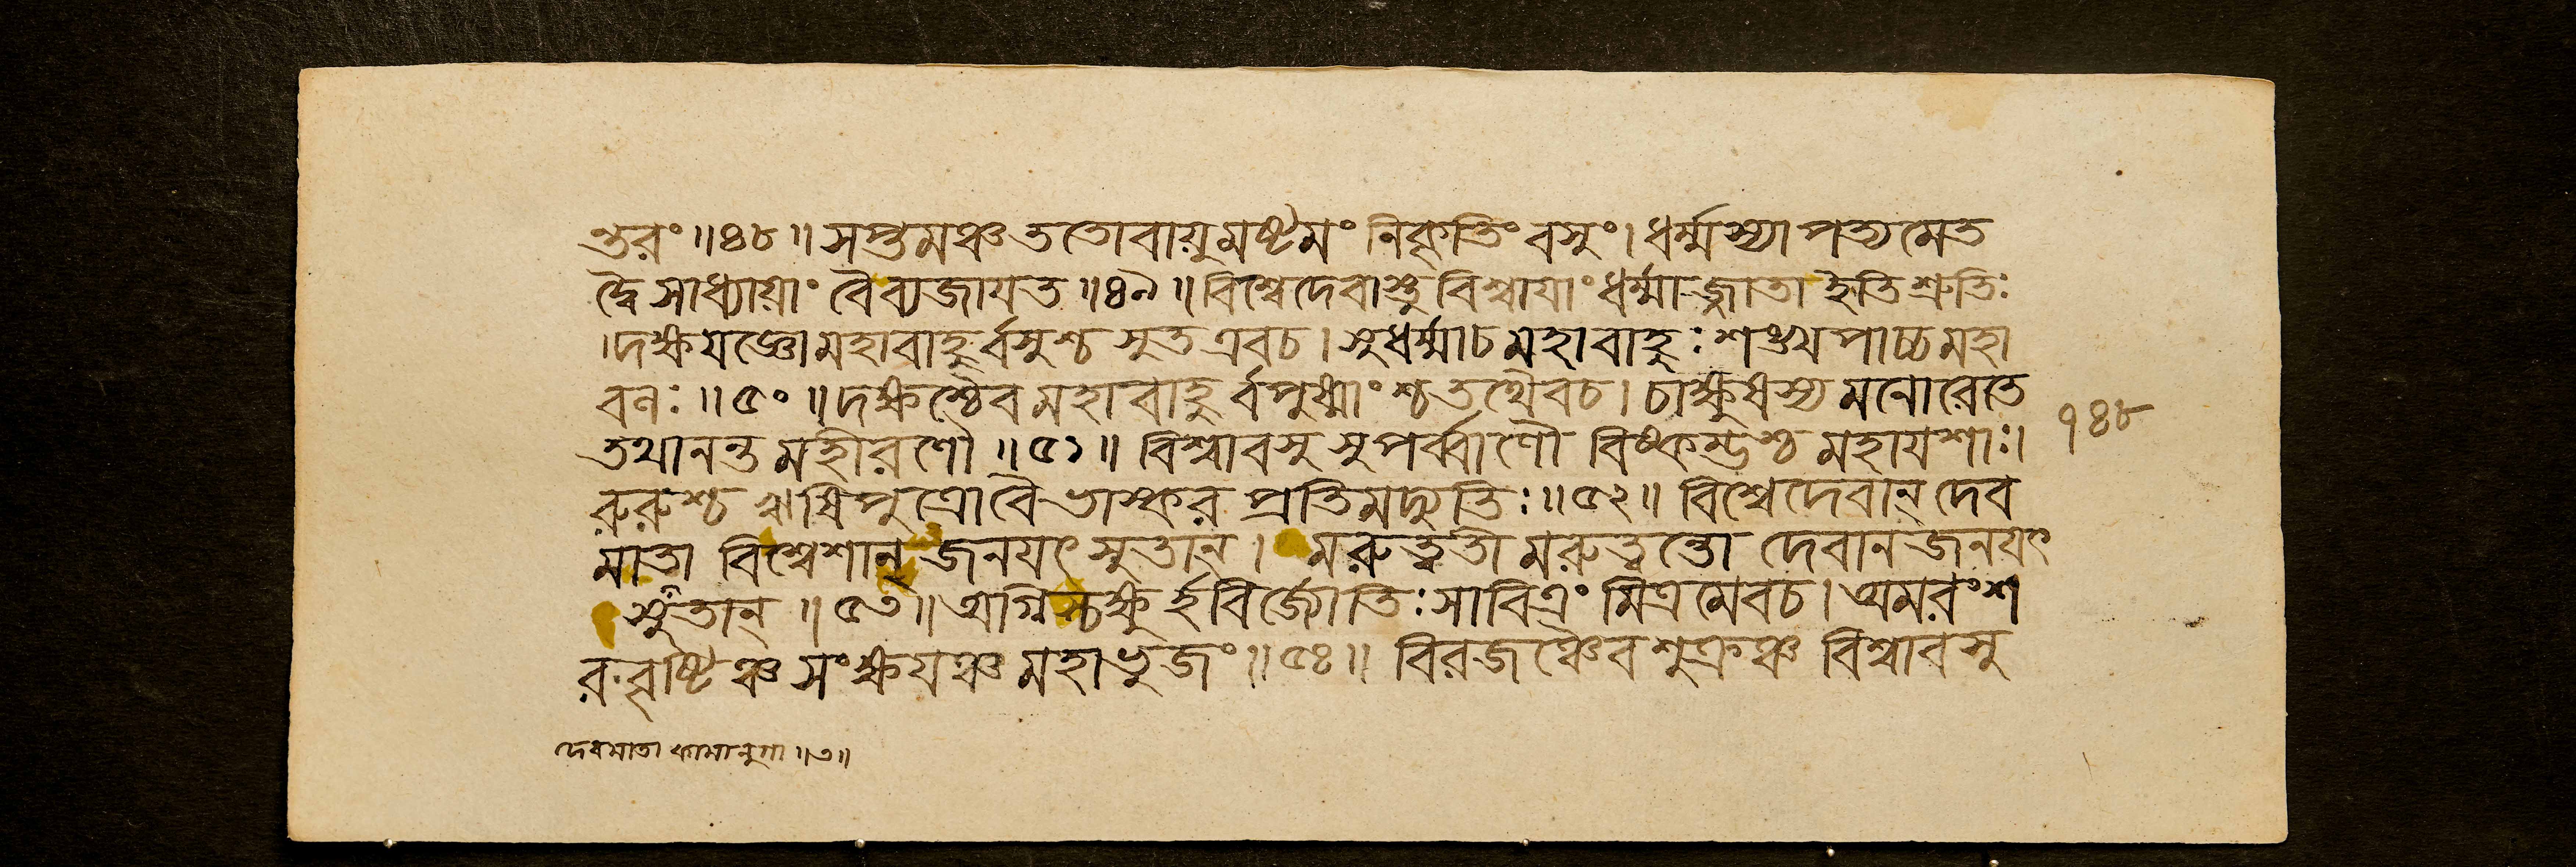 ন্তরং॥৪৮॥সপ্তমঞ্চততোবায়ুমষ্টমং নিঋতিং বসুং।ধর্ম্মস্যাপত্যমেত
দ্বৈসাধ্যায়াং বৈব্যজাযত॥৪৯॥বিশ্বেদেবাস্তুবিশ্বাযাং ধর্ম্মাজ্জাতা ইতিশ্রুতিঃ
।দক্ষযজ্ঞোমহাবাহুর্বসুশ্চ সুত এবচ।সুধর্ম্মাচমহাবাহুঃ শঙ্খপাচ্চমহা
বনঃ॥৫০॥দক্ষশ্চৈবমহাবাহুর্বপুষ্মাংশ্চতথৈবচ।চাক্ষুষস্যমনোরেতে
তথানন্তমহীরণৌ॥৫১॥ বিশ্বাবসুসুপর্ব্বাণৌ বিষ্কম্ভশ্চ মহাযশাঃ।
রুরুশ্চ ঋষিপুত্রোবৈভাস্কর প্রতিমদ্যুতিঃ॥৫২॥ বিশ্বেদেবান্ দেব
মাতা বিশ্বেশান্ জনযৎসুতান্। মরুত্বতী মরুত্বন্তো দেবানজনযৎ
সুঁতান্॥৫৩॥অগ্নিস্চক্ষুর্হবির্জ্জোতিঃ সাবিত্রং মিত্রমেবচ।অমরং শ
রবৃষ্টিঞ্চ সংক্ষযঞ্চমহাভুজং॥৫৪॥ বিরজঞ্চৈবশুক্রঞ্চ বিশ্বাবসু
১৪৮
দেবমাতা কামানুগা॥৩॥